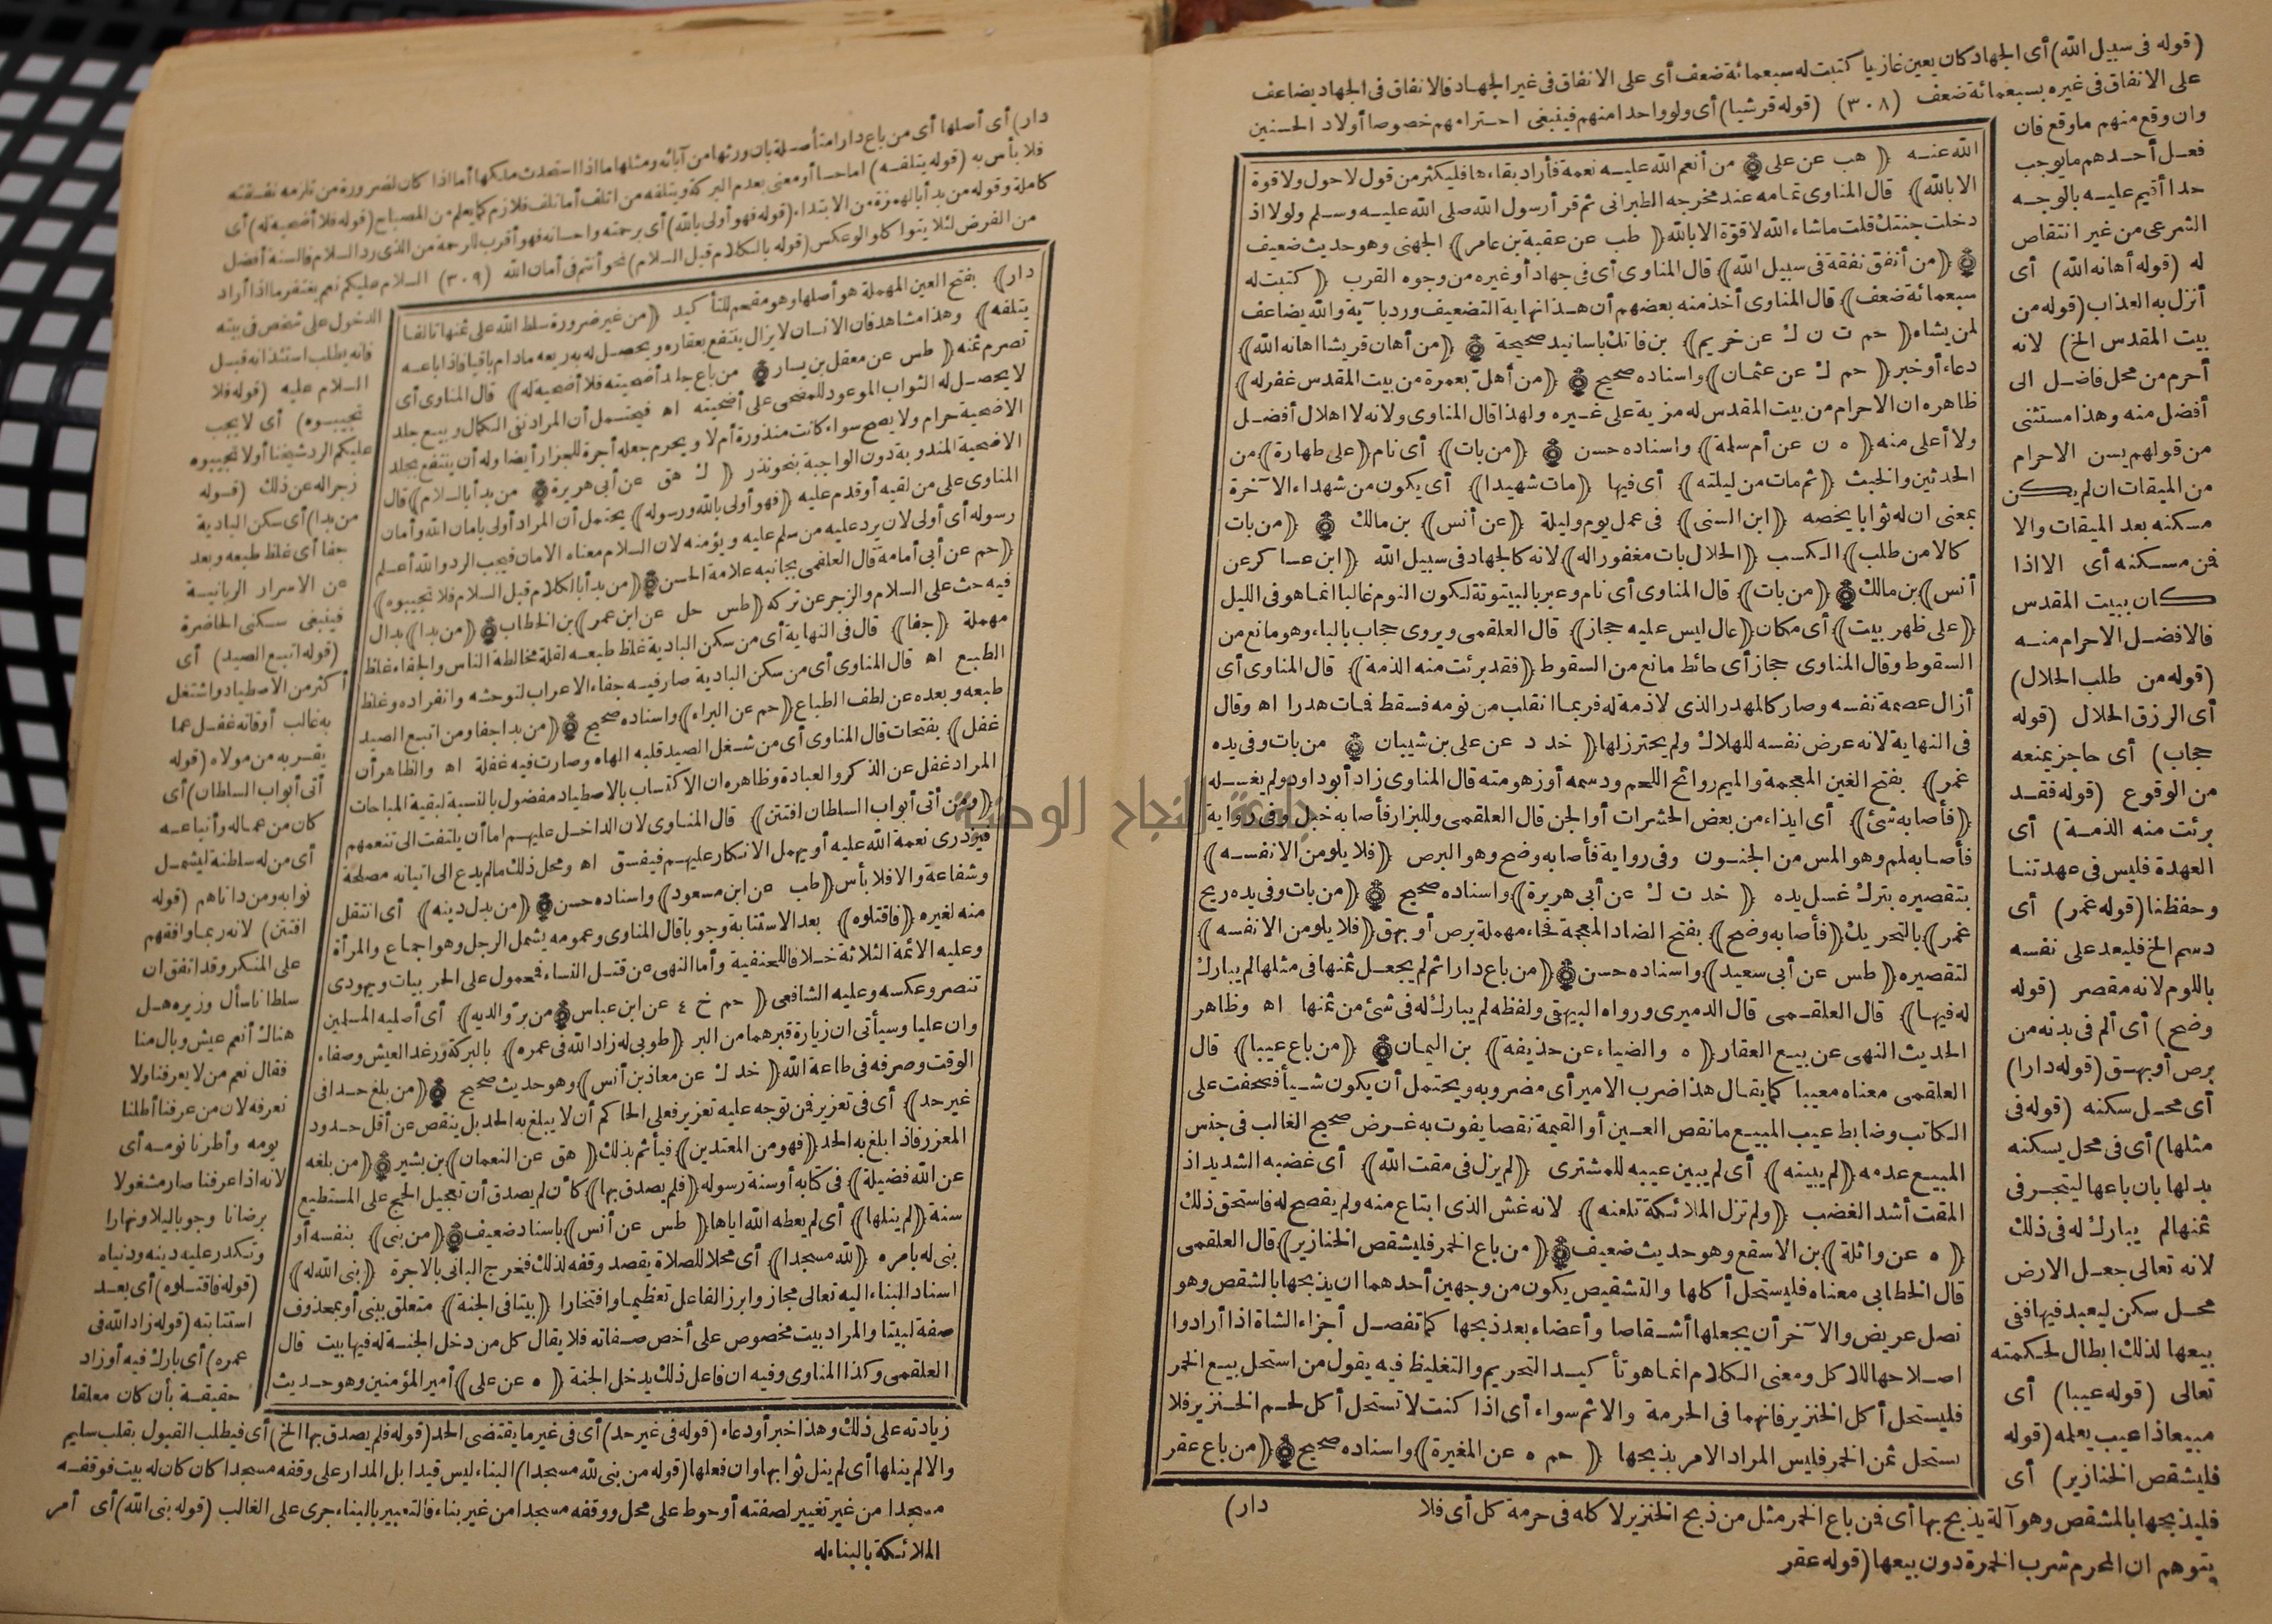 (قوله فى سبيل الله) أى الجهاد كان يعين غازيا كتبت له سبعمائة ضعف أى على الانفاق فى غير الجهاد فالانفاق فى الجهاد يضاعف
على الانفاق فى غيره بسبعمائة ضعف (٣٠٨) (قوله قرشيا) أى ولو واحدا منهم فينبغى احترامهم خصوصا أولاد الحسنين
وان وقع منهم ما وقع فان
فعل أحدهم ما يوجب
حدا أقيم عليه بالوجه
الشرعى من غير انتقاص
له (قوله أهانه الله) أى
أنزل به العذاب (قوله من
بيت المقدس الخ) لانه
أحرم من محل فاضل الى
أفضل منه وهذا مستثنى
من قولهم يسن الاحرام
من الميقات ان لم يكن
مسكنه بعد الميقات والا
فن مسكنه أى الا اذا
كان ببيت المقدس
فالافضل الاحرام منه
(قوله من طلب الحلال)
أى الرزق الحلال (قوله
حجاب) أى حاجز يمنعه
من الوقوع (قوله فقد
برئت منه الذمة) أى
العهدة فليس فى عهدتنا
وحفظنا (قوله غمر) أى
دسم الخ فليعد على نفسه
باللوم لانه مقصر (قوله
وضح) أى ألم فى بدنه من
برص أو بهق (قوله دارا)
أى محل سكنه (قوله فى
مثلها) أى فى محل يسكنه
بدلها بان باعها ليتجر فى
ثمنها لم يبارك له فى ذلك
لانه تعالى جعل الارض
محل سكن ليعبد فيها ففى
بيعها لذلك ابطال لحكمته
تعالى (قوله عيبا) أى
مبيعا ذا عيب يعلمه (قوله
فليشقص الخنازير) أى
فليذبحها بالمشقص وهو آلة يذبح بها أى فن باع الخمر مثل من ذبح الخنزير لاكله فى حرمة كل أى فلا
يتوهم ان المحرم شرب الخمرة دون بيعها (قوله عقر
الله عنه ﴿هب عن على﴾ من أنعم الله عليه نعمة فأراد بقاءها فليكثر من قول لا حول ولا قوة
الا بالله﴾ قال المناوى تمامه عند مخرجه الطبرانى ثم قرأ رسول الله صلى الله عليه وسلم ولولا اذ
دخلت جنتك قلت ما شاء الله لا قوة الا بالله ﴿طب عن عقبة بن عامر﴾ الجهنى وهو حديث ضعيف
﴿من أنفق نفقة فى سبيل الله﴾ قال المناوى أى فى جهاد أو غيره من وجوه القرب ﴿كتبت له
سبعمائة ضعف﴾ قال المناوى أخذ منه بعضهم أن هذا نهاية التضعيف ورد بآية والله يضاعف
لمن يشاء ﴿حم ت ن ك عن خريم﴾ بن فاتك باسانيد صحيحة ﴿من أهان قريشا اهانه الله﴾
دعاء أو خبر ﴿حم ك عن عثمان﴾ واسناده صحيح ﴿من أهل بعمرة من بيت المقدس غفر له﴾
ظاهره ان الاحرام من بيت المقدس له مزية على غيره ولهذا قال المناوى ولانه لا اهلال أفضل
ولا أعلى منه ﴿ه ن عن أم سلمة﴾ واسناده حسن ﴿من بات﴾ أى نام ﴿على طهارة﴾ من
الحدثين والخبث ﴿ثم مات من ليلته﴾ أى فيها ﴿مات شهيدا﴾ أى يكون من شهداء الآخرة
بمعنى ان له ثوابا يخصه ﴿ابن السنى﴾ فى عمل يوم وليلة ﴿عن أنس﴾ بن مالك ﴿من بات
كالا من طلب﴾ الكسب ﴿الحلال بات مغفورا له﴾ لانه كالجهاد فى سبيل الله ﴿ابن عساكر عن
أنس﴾ بن مالك ﴿من بات﴾ قال المناوى أى نام وعبر بالبيتوتة لكون النوم غالبا انما هو فى الليل
﴿على ظهر بيت﴾ أى مكان ﴿عال ليس عليه حجاز﴾ قال العلقمى ويروى حجاب بالباء وهو مانع من
السقوط وقال المناوى حجاز أى حائط مانع من السقوط ﴿فقد برئت منه الذمة﴾ قال المناوى أى
أزال عصمة نفسه وصار كالمهدر الذى لا ذمة له فربما انقلب من نومه فسقط فمات هدرا اه وقال
فى النهاية لانه عرض نفسه للهلاك ولم يحترز لها ﴿خد د عن على بن شيبان﴾ من بات وفى يده
غمر﴾ بفتح الغين المعجمة والميم روائح اللحم ودسمه أو زهومته قال المناوى زاد أبو داود ولم يغسله
﴿فأصابه شئ﴾ أى ايذاء من بعض الحشرات أو الجن قال العلقمى وللبزار فأصابه خبل وفى رواية
فأصابه لمم وهو المس من الجنون وفى رواية فأصابه وضح وهو البرص ﴿فلا يلومن الا نفسه﴾
بتقصيره بترك غسل يده ﴿خد ت ك عن أبى هريرة﴾ واسناده صحيح ﴿من بات وفى يده ريح
غمر﴾ بالتحريك ﴿فأصابه وضح﴾ بفتح الضاد المعجمة فحاء مهملة برص أو بهق ﴿فلا يلومن الا نفسه﴾
لتقصيره ﴿طس عن أبى سعيد﴾ واسناده حسن ﴿من باع دارا ثم لم يجعل ثمنها فى مثلها لم يبارك
له فيها﴾ قال العلقمى قال الدميرى ورواه البيهقى ولفظه لم يبارك له فى شئ من ثمنها اه وظاهر
الحديث النهى عن بيع العقار ﴿ه والضياء عن حذيفة﴾ بن اليمان ﴿من باع عيبا﴾ قال
العلقمى معناه معيبا كما يقال هذا ضرب الامير أى مضروبه ويحتمل أن يكون شيأ فصحفت على
الكاتب وضابط عيب المبيع ما نقص العين أو القيمة نقصا يفوت به غرض صحيح الغالب فى جنس
المبيع عدمه ﴿لم يبينه﴾ أى لم يبين عيبه للمشترى ﴿لم يزل فى مقت الله﴾ أى غضبه الشديد اذ
المقت أشد الغضب ﴿ولم تزل الملائكة تلعنه﴾ لانه غش الذى ابتاع منه ولم يفصح له فاستحق ذلك
﴿ه عن واثلة﴾ بن الاسقع وهو حديث ضعيف ﴿من باع الخمر فليشقص الخنازير﴾ قال العلقمى
قال الخطابى معناه فليستحل أكلها والتشقيص يكون من وجهين أحدهما ان يذبحها بالشقص وهو
نصل عريض والآخر أن يجعلها أشقاصا وأعضاء بعد ذبحها كما تفصل أجزاء الشاة اذا أرادوا
اصلاحها للاكل ومعنى الكلام انما هو تأكيد التحريم والتغليظ فيه يقول من استحل بيع الخمر
فليستحل أكل الخنزير فانهما فى الحرمة والاثم سواء أى اذا كنت لا تستحل أكل لحم الخنزير فلا
تستحل ثمن الخمر فليس المراد الامر بذبحها ﴿حم ه عن المغيرة﴾ واسناده صحيح ﴿من باع عقر
دار)
دار) أى أصلها أى من باع دارا متأصلة بان ورثها من آبائه ومثلها ما اذا استحدث ملكها أما اذا كان لضرورة من تلزمه نفقته
فلا بأس به (قوله يتلفه) اما حسا أو معنى بعدم البركة ويتلفه من اتلف أما تلف فلازم كما يعلم من المصباح (قوله فلا أضحية له) أى
كاملة وقوله من بدأ بالهمزة من الابتداء (قوله فهو أولى بالله) أى برحمته واحسانه فهو أقرب للرحمة من الذى رد السلام فالسنة أفضل
من الفرض لئلا يتواكلوا لو عكس (قوله بالكلام قبل السلام) نحو أنتم فى أمان الله (٣٠٩) السلام عليكم نعم يغتفر ما اذا أراد
الدخول على شخص فى بيته
فانه يطلب استئذانه قبل
السلام عليه (قوله فلا
تجيبوه) أى لا يجب
عليكم الرد شيخنا أو لا تجيبوه
زجرا له عن ذلك (قوله
من بدا) أى سكن البادية
جفا أى غلظ طبعه وبعد
عن الاسرار الربانية
فينبغى سكنى الحاضرة
(قوله اتبع الصيد) أى
أكثر من الاصطياد واشتغل
به غالب أوقاته غفل عما
يقربه من مولاه (قوله
أتى أبواب السلطان) أى
كان من عماله وأتباعه
أى من له سلطنة ليشمل
نوابه ومن داناهم (قوله
افتتن) لانه ربما وافقهم
على المنكر وقد اتفق ان
سلطانا سأل وزيره هل
هناك أنعم عيش وبال منا
فقال نعم من لا يعرفنا ولا
نعرفه لان من عرفنا أطلنا
يومه وأطرنا نومه أى
لانه اذا عرفنا صار مشغولا
برضانا وجوبا ليلا ونهارا
وتكدر عليه دينه ودنياه
(قوله فاقتلوه) أى بعد
استتابته (قوله زاد الله فى
عمره) أى بارك فيه أو زاد
حقيقة بأن كان معلقا
دار﴾ بفتح العين المهملة هو أصلها وهو مقحم للتأكيد ﴿من غير ضرورة سلط الله على ثمنها تالفا
يتلفه﴾ وهذا مشاهد فان الانسان لا يزال ينتفع بعقاره ويحصل له به ريعه مادام باقيا فاذا باعه
تصرم ثمنه ﴿طس عن معقل بن يسار﴾ من باع جلد أضحيته فلا أضحية له﴾ قال المناوى أى
لا يحصل له الثواب الموعود للمضحى على أضحيته اه فيحتمل أن المراد نفى الكمال وبيع جلد
الاضحية حرام ولا يصح سواء كانت منذورة أم لا ويحرم جعله أجرة للجزار أيضا وله أن ينتفع بجلد
الاضحية المندوبة دون الواجبة بنحو نذر ﴿ك هق عن أبى هريرة﴾ من بدأ بالسلام﴾ قال
المناوى على من لقيه أو قدم عليه ﴿فهو أولى بالله ورسوله﴾ يحتمل أن المراد أولى بامان الله وأمان
رسوله أى أولى لان يرد عليه من سلم عليه ويؤمنه لان السلام معناه الامان فيجب الرد والله أعلم
﴿حم عن أبى أمامة قال العلقمى بجانبه علامة الحسن ﴿من بدأ بالكلام قبل السلام فلا تجيبوه﴾
فيه حث على السلام والزجر عن تركه ﴿طس حل عن ابن عمر﴾ بن الخطاب ﴿من بدا﴾ بدال
مهملة ﴿جفا﴾ قال فى النهاية أى من سكن البادية غلظ طبعه لقلة مخالطة الناس والجفاء غلظ
الطبع اه قال المناوى أى من سكن البادية صار فيه جفاء الاعراب لتوحشه وانفراده وغلظ
طبعه وبعده عن لطف الطباع ﴿حم عن البراء﴾ واسناده صحيح ﴿من بدا جفا ومن اتبع الصيد
غفل﴾ بفتحات قال المناوى أى من شغل الصيد قلبه الهاه وصارت فيه غفلة اه والظاهر أن
المراد غفل عن الذكر والعبادة وظاهره ان الاكتساب بالاصطياد مفضول بالنسبة لبقية المباحات
﴿ومن أتى أبواب السلطان افتتن﴾ قال المناوى لان الداخل عليهم اما أن يلتفت الى تنعمهم
فيزدرى نعمة الله عليه أو يهمل الانكار عليهم فيفسق اه ومحل ذلك ما لم يدع الى اتيانه مصلحة
وشفاعة والا فلا بأس ﴿طب عن ابن مسعود﴾ واسناده حسن ﴿من بدل دينه﴾ أى انتقل
منه لغيره ﴿فاقتلوه﴾ بعد الاستتابة وجوبا قال المناوى وعمومه يشمل الرجل وهو اجماع والمرأة
وعليه الائمة الثلاثة خلافا للحنفية وأما النهى عن قتل النساء فمحمول على الحربيات ويهودى
تنصر وعكسه وعليه الشافعى ﴿حم خ ٤ عن ابن عباس﴾ من بر والديه﴾ أى أصليه المسلمين
وان عليا وسيأتى ان زيارة قبرهما من البر ﴿طوبى له زاد الله فى عمره﴾ بالبركة ورغد العيش وصفاء
الوقت وصرفه فى طاعة الله ﴿خد ك عن معاذ بن أنس﴾ وهو حديث صحيح ﴿من بلغ حدا فى
غير حد﴾ أى فى تعزير فن توجه عليه تعزير فعلى الحاكم أن لا يبلغ به الحد بل ينقص عن أقل حدود
المعزر فاذا بلغ به الحد ﴿فهو من المعتدين﴾ فيأثم بذلك ﴿هق عن النعمان﴾ بن بشير ﴿من بلغه
عن الله فضيلة﴾ فى كتابه أو سنة رسوله ﴿فلم يصدق بها﴾ كأن لم يصدق أن تعجيل الحج على المستطيع
سنة ﴿لم ينلها﴾ أى لم يعطه الله اياها ﴿طس عن أنس﴾ باسناد ضعيف ﴿من بنى﴾ بنفسه أو
بنى له بامره ﴿لله مسجدا﴾ أى محلا للصلاة يقصد وقفه لذلك فخرج البانى بالاجرة ﴿بنى الله له﴾
اسناد البناء اليه تعالى مجاز وابرز الفاعل تعظيما وافتخارا ﴿بيتا فى الجنة﴾ متعلق ببنى أو بمحذوف
صفة لبيتا والمراد بيت مخصوص على أخص صفاته فلا يقال كل من دخل الجنة له فيها بيت قال
العلقمى وكذا المناوى وفيه ان فاعل ذلك يدخل الجنة ﴿ه عن على﴾ أمير المؤمنين وهو حديث
زيادته على ذلك وهذا خبر أو دعاء (قوله فى غير حد) أى فى غير ما يقتضى الحد (قوله فلم يصدق بها الخ) أى فيطلب القبول بقلب سليم
والا لم ينلها أى لم ينل ثوابها وان فعلها (قوله من بنى لله مسجدا) البناء ليس قيدا بل المدار على وقفه مسجدا كان كان له بيت فوقفه
مسجدا من غير تغيير لصفته أو حوط على محل ووقفه مسجدا من غير بناء فالتعبير بالبناء جرى على الغالب (قوله بنى الله) أى أمر
الملائكة بالبناء له
جامعة النجاح الوطنية